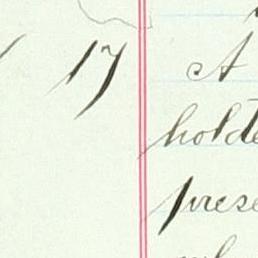 17 A
holde
prese